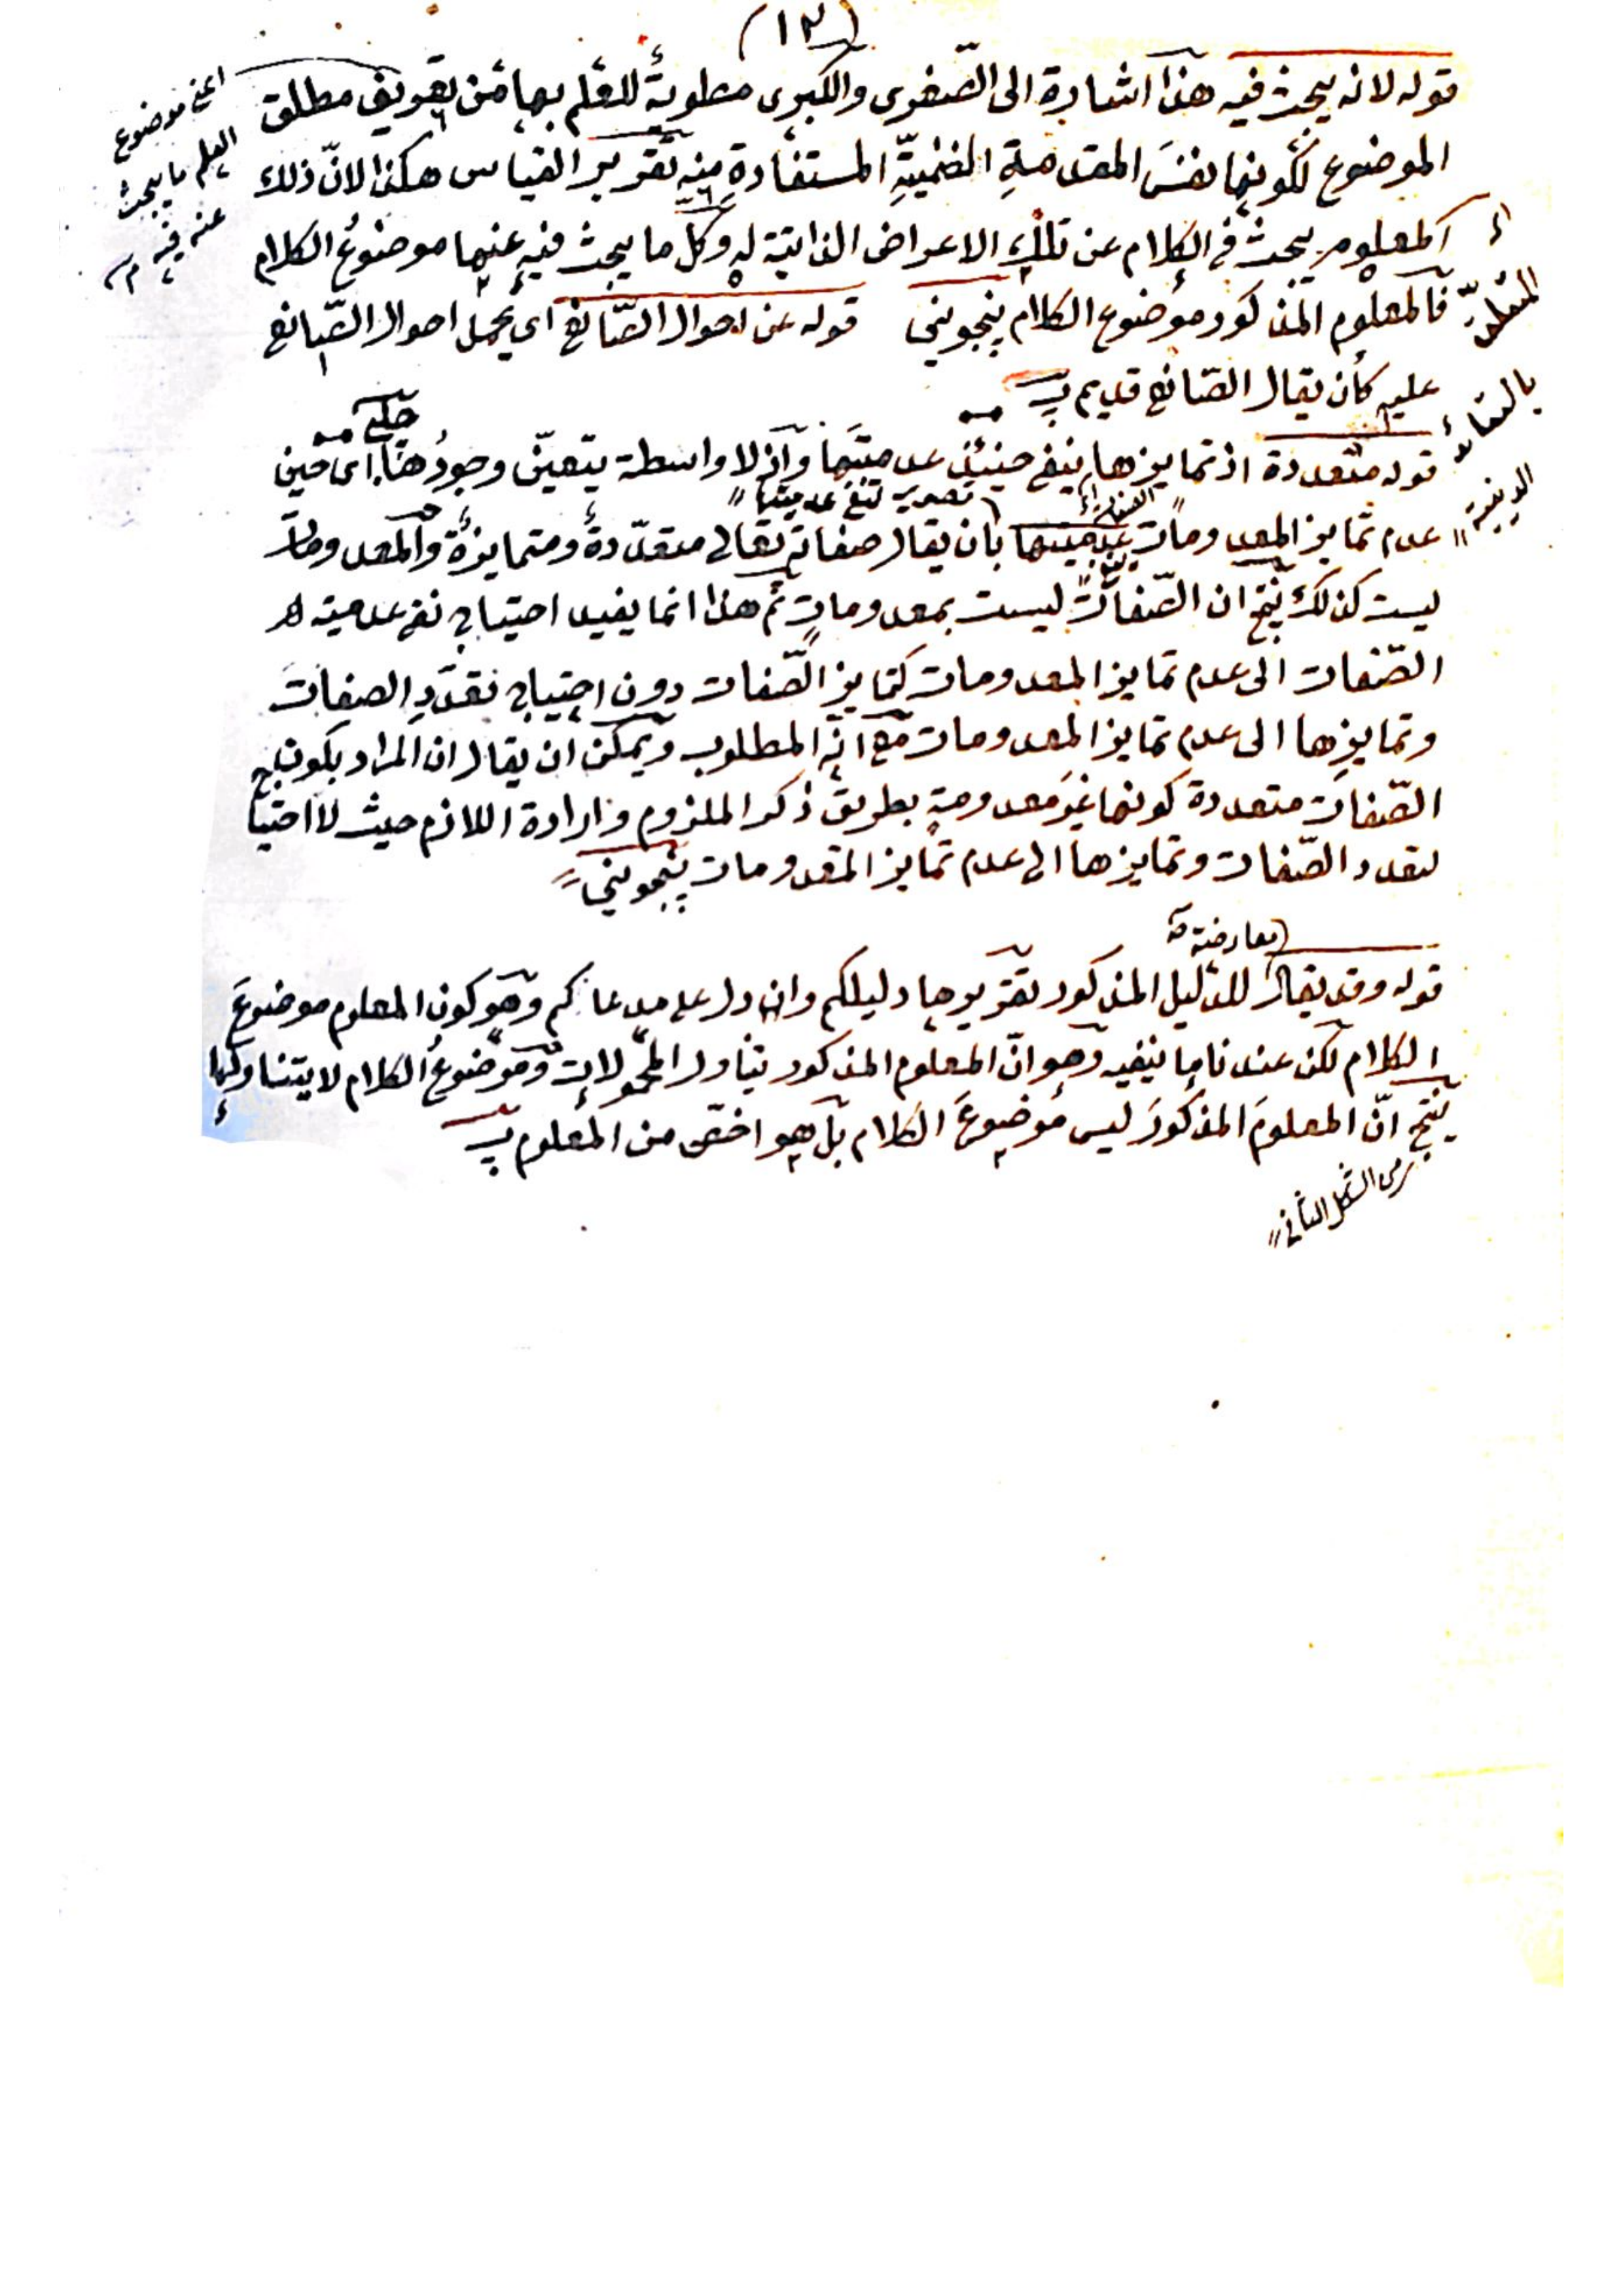 (١٣)
قوله لانه يبحث فيه هذا اشارة الى الصّغرى والكبرى مطوية للعلم بها من تعريف مطلق
اعنى موضوع
العلم ما يبحث
عنه فيه
الموضوع لكونها نفسَ المقدمةِ الضمنيّةِ المستفادةِ منه تقرير القياس هكذا لانّ ذلك
المعلوم يبحث فى الكلام عن تلك الاعراض الذاتية له وكل ما يبحث فيه عنها موضوعُ الكلام
المتعلق
بالعقائد
الدينية
فالمعلوم المذكور موضوع الكلام پنجوينى قوله عن احوال الصّانع اى بحمل احوال الصّانع
عليه كأن يقال الصّانع قديم پ
قوله متعددة اذ تمايزها ينفى حينئذ عدميتَها واذ لا واسطة يتعيّن وجودُها اى حين
تصوير لنفى عدميتها
عدم تمايز المعدومات عدميتها بان يقال صفاته تعالى متعدّدةٌ ومتمايزةٌ والمعدومات
ليست كذلك ينتج ان الصّفات ليست بمعدومات ثم هذا انما يفيد احتياج نفى عدمية
الصّفات الى عدم تمايز المعدومات كتمايز الصّفات دون احتياج تعدّدِ الصفات
وتمايزِها الى عدم تمايز المعدومات مع انّه المطلوب ويمكن ان يقال ان المراد بكون
الصّفات متعددة كونها غيرَ معدومة بطريق ذكر الملزوم وارادة اللازم حيث لا احتيا
لتعدد الصّفات وتمايزها الى عدم تمايز المعدومات پنجوينى
معارضة
قوله وقد يقال للدليل المذكور تقريرها دليلكم وان دل على مدعاكم وهو كون المعلوم موضوعَ
الكلام لكن عندنا ما ينفيه وهو انّ المعلوم المذكور يتناول المحمولات وموضوعُ الكلام لا يتناولها
ينتج انّ المعلومَ المذكورَ ليس موضوعَ الكلام بل هو اخصّ من المعلوم پ
من الشكل الثانى